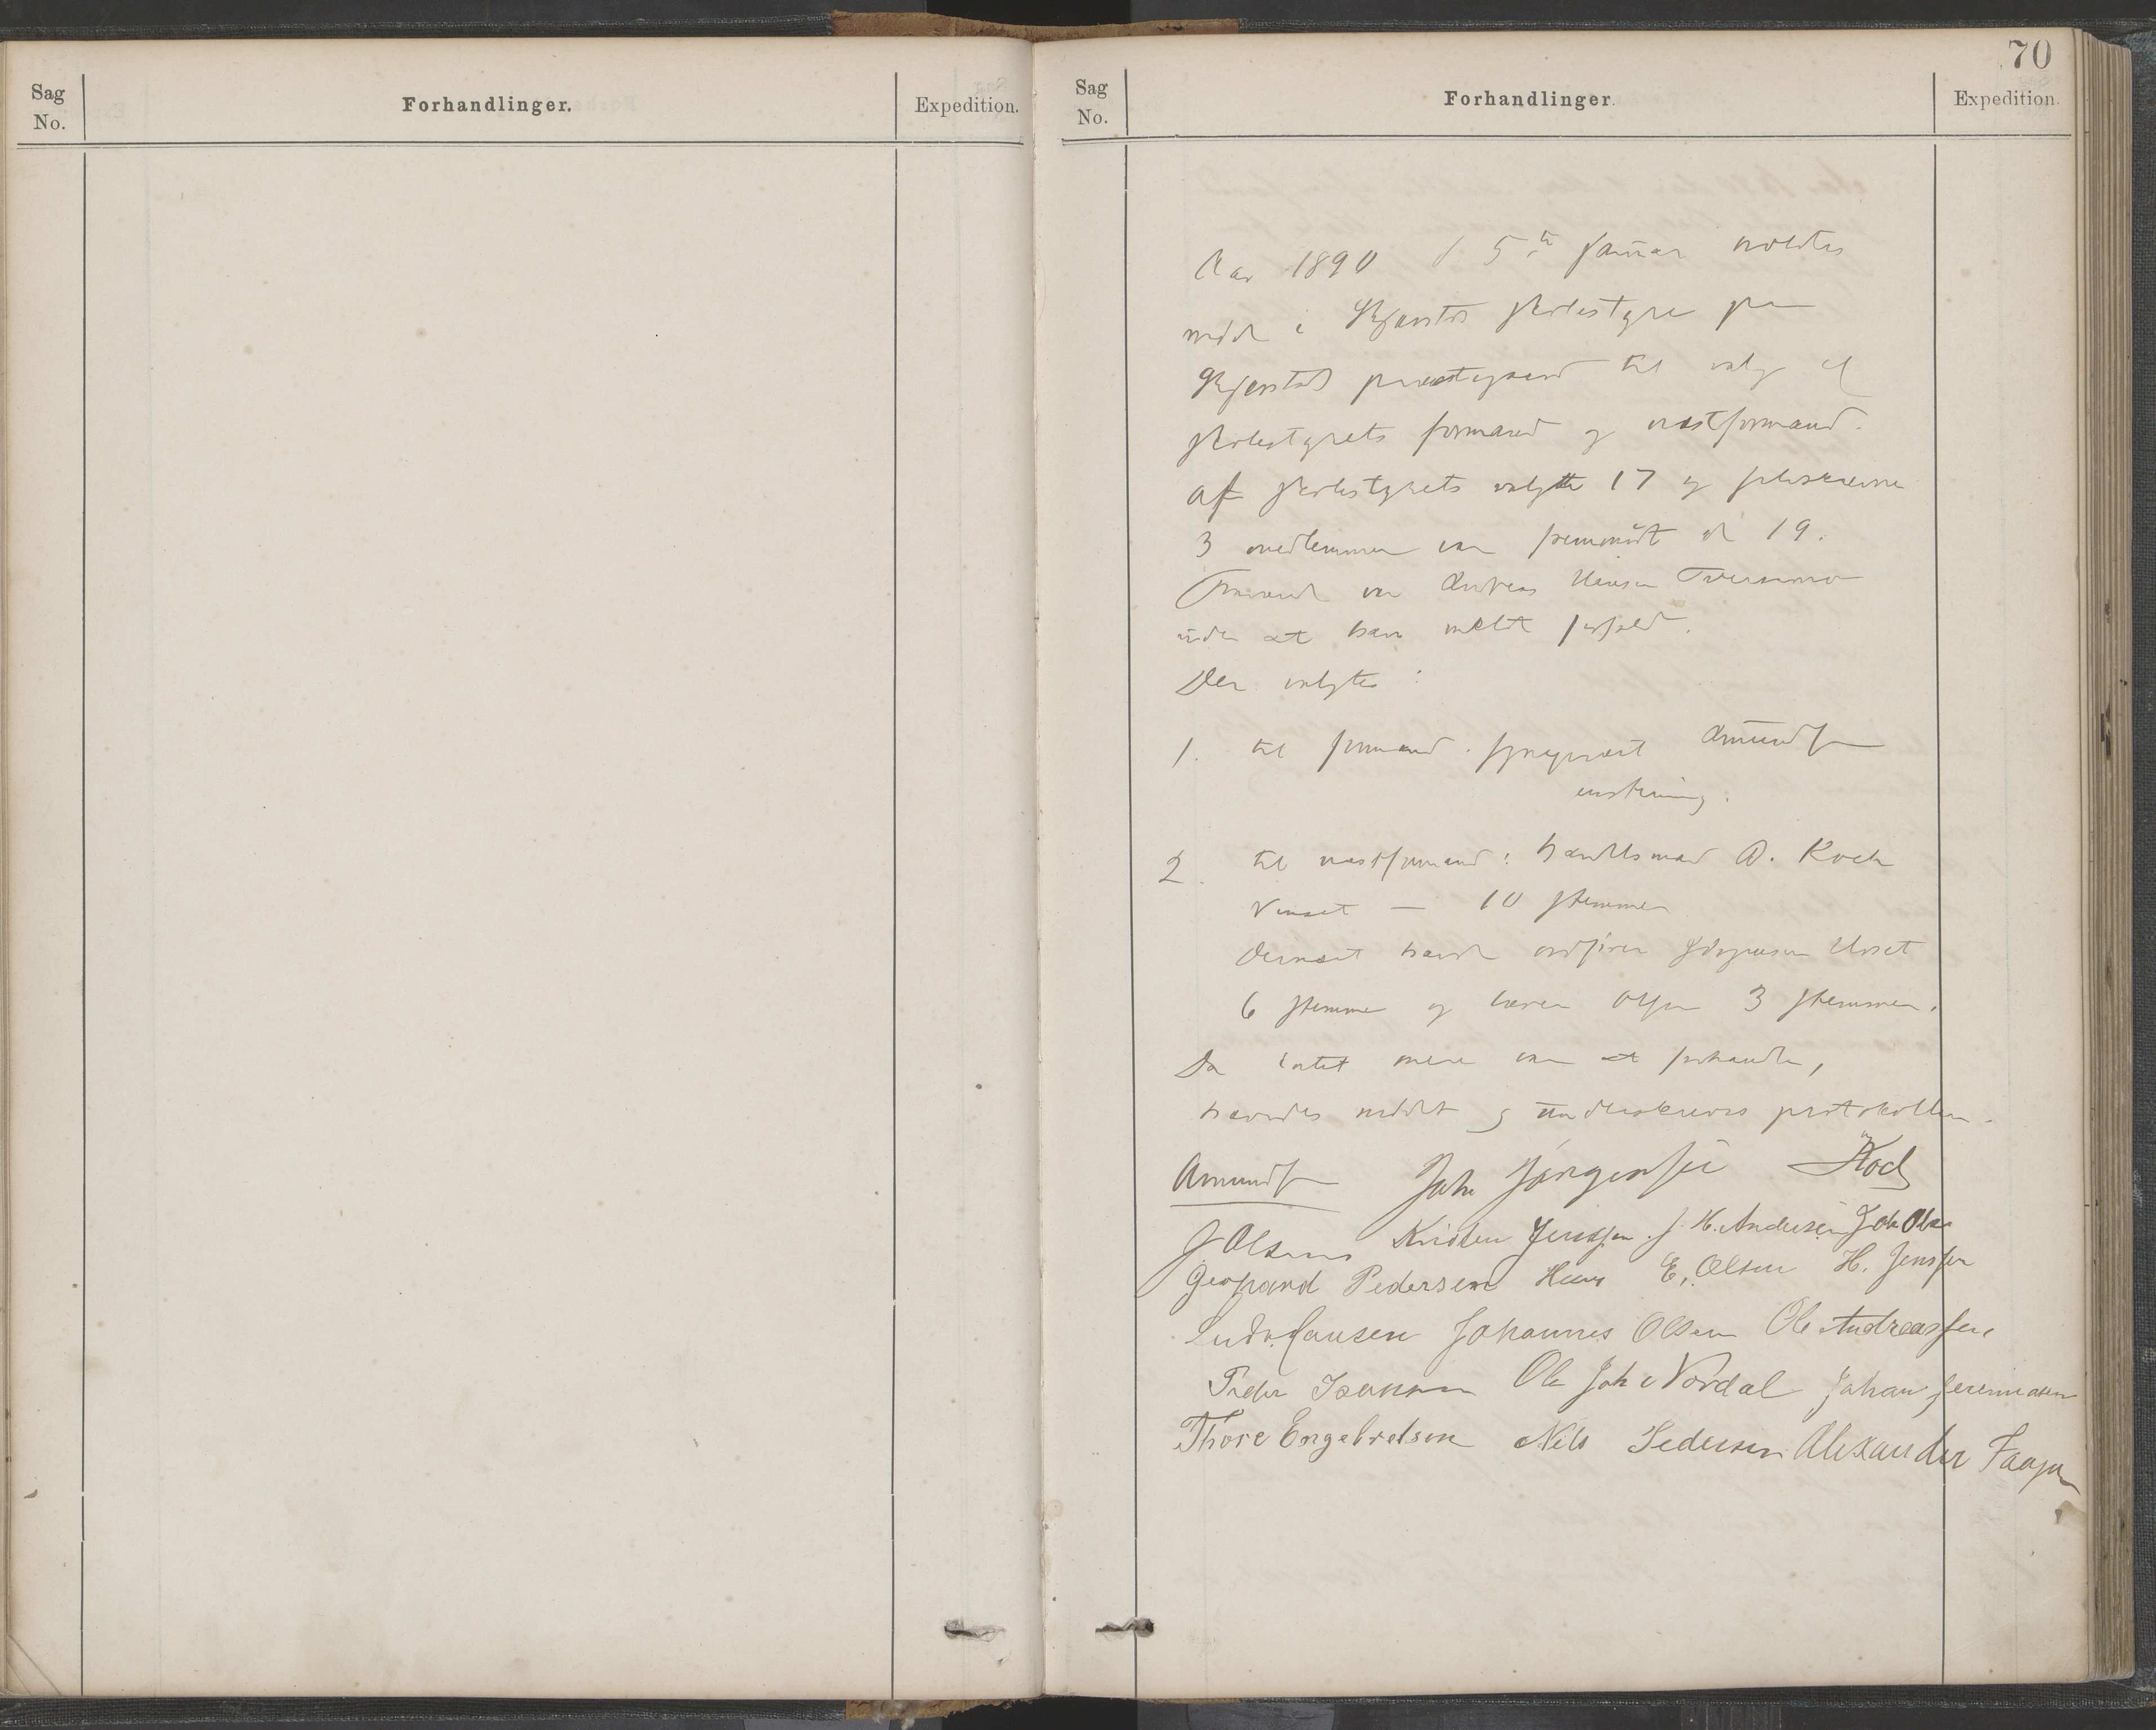 Sag
No.
Forhandlinger.
Expedition.
70
Sag
No.
Forhandlinger.
Expedition.
Aar 1890 d 5te januar holdtes
møde i Skjerstad skolestyre paa
Skjerstad prestegaard til valg af
skolestyrets formand og næstformand.
Af skolestyrets valgte 17 og selvskrevne
3 medlemmer var fremmødt 19.
Fraværende var Andreas Hansen
uden at have meldt forfald.
Der valgtes:
1. til formand: sogneprest Amundsen
enstemmig.
2. til næstformand: handelsmand A. Koch
Venset — 10 stemmer
dernæst havde ordfører Jørgensen Uvset
6 stemmer og lærer Olsen 3 stemmer.
Da intet mere var at forhandle,
hævedes mødet og underskreves protokollen.
Amundsen Joh Jørgensen Koch
J Olsen Kristen Jenssen. J. H. Andersen Joh Olsen
Gerhard Pedersen Hans E. Olsen H. Jenssen
Ludv. Hansen Johannes Olsen Ole Andreassen
Peder Isaksen Ole Joh Nordal Johan Jeremiasen
Thore Engebretsen Nils Pedersen Alexander